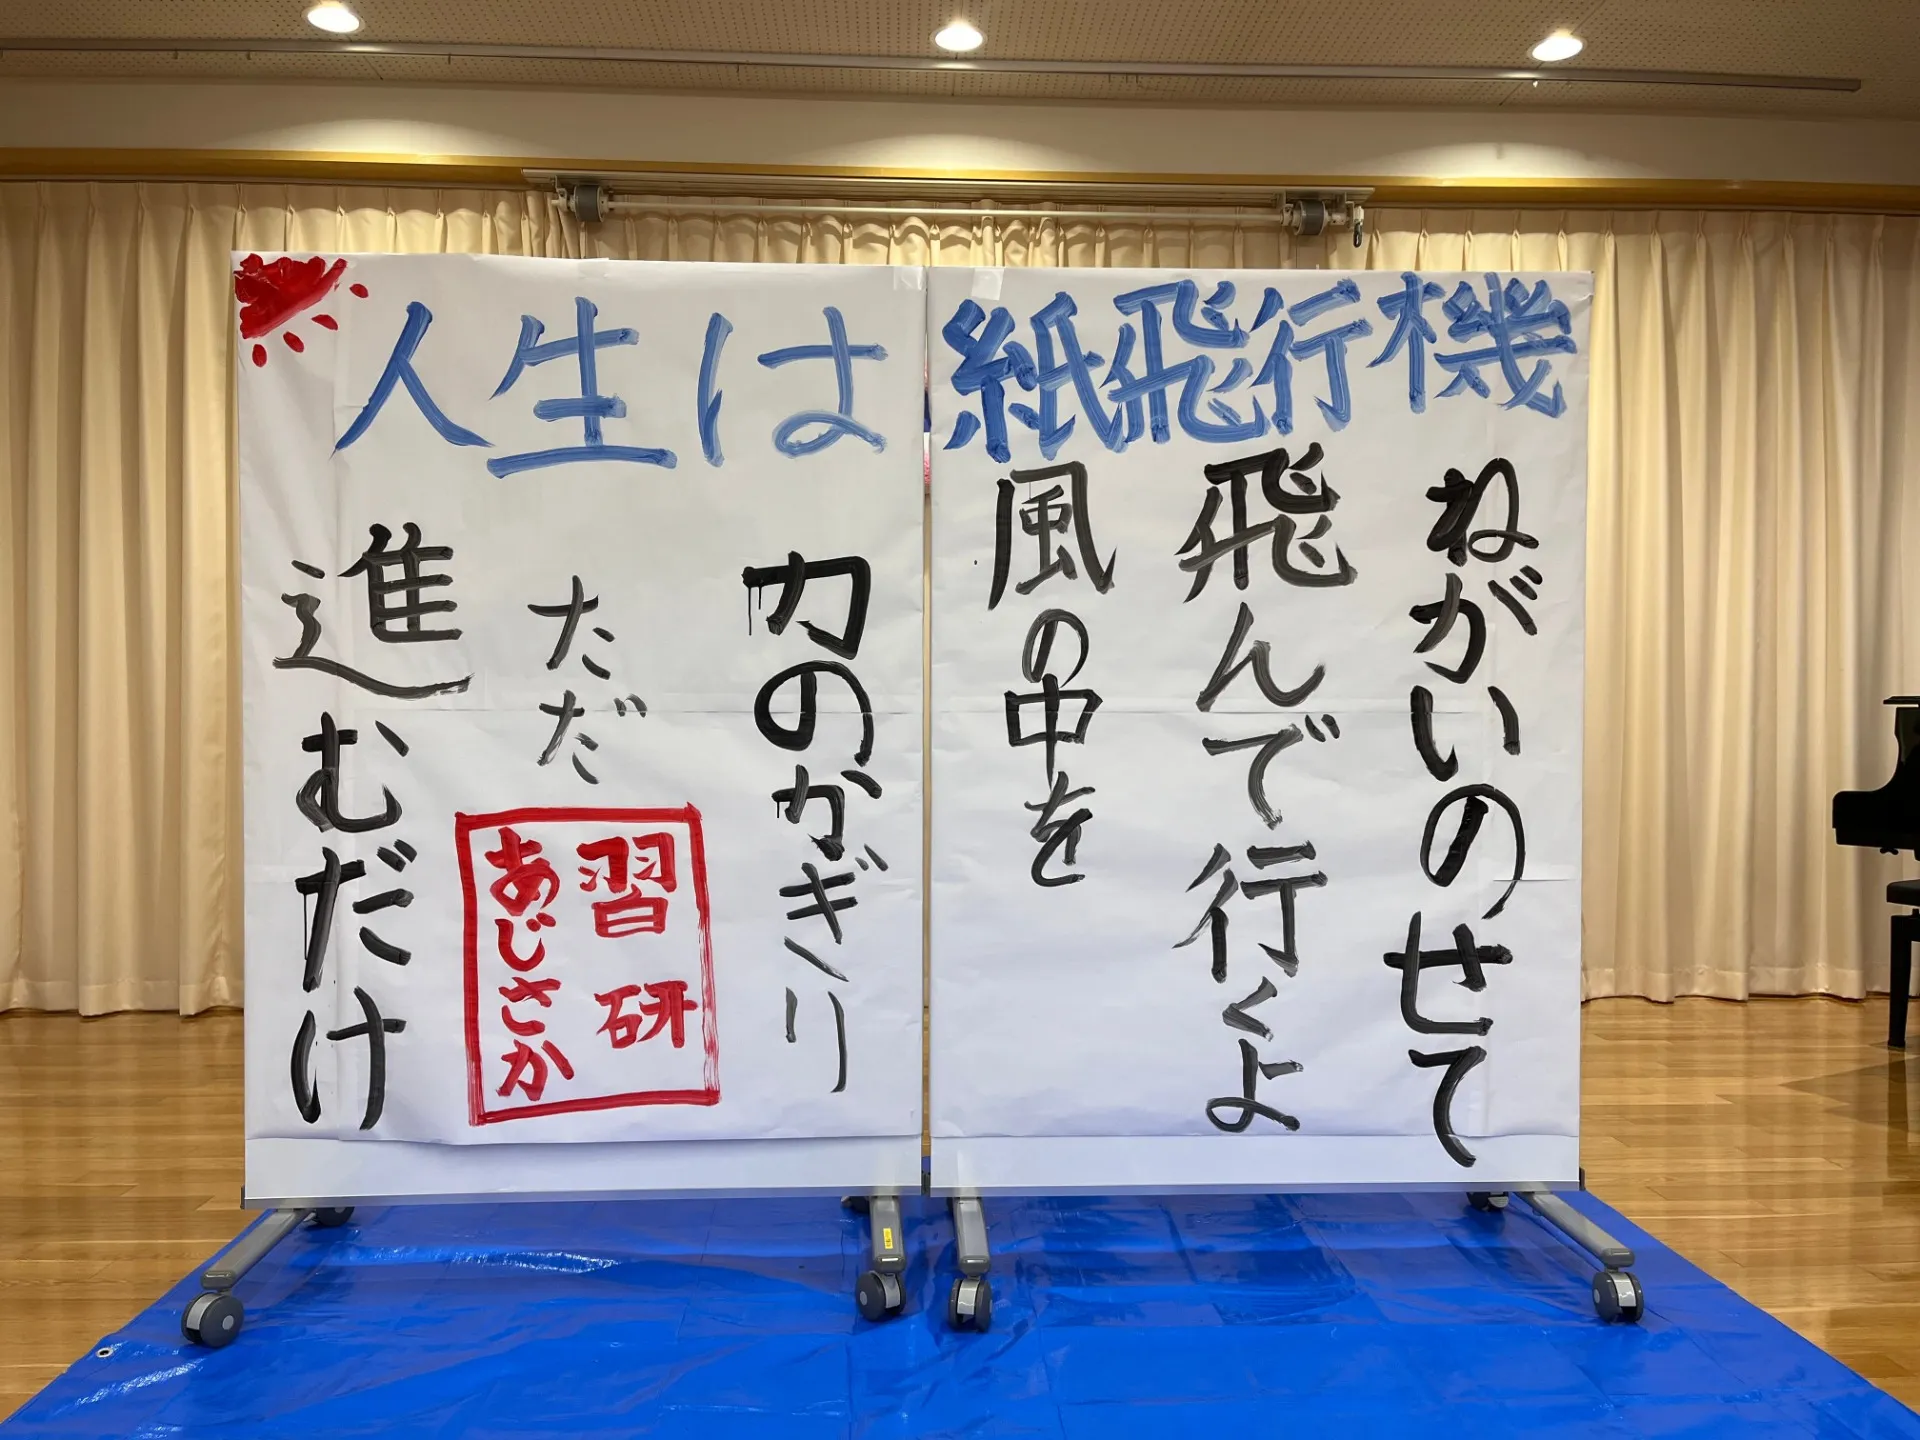 人生は紙飛行機
ねがいのせて
飛んで行くよ
風の中を
力のかぎり
ただ
進むだけ
習研
あじさか